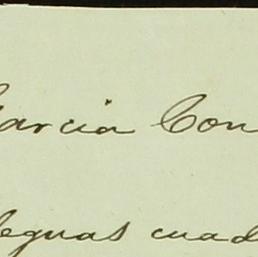 Garcia Con
leguas cuad